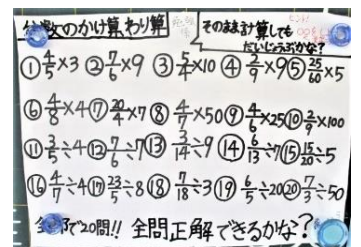 分数のかけ算、わり算
そのまま計算しても
だいじょうぶかな?
① 4/5×3 ② 7/6×9 ③ 5/4×10 ④ 2/9×9 ⑤ 25/60×5
⑥ 4/8×4 ⑦ 20/4×7 ⑧ 4/7×50 ⑨ 4/6×25 ⑩ 2/9×100
⑪ 3/5÷4 ⑫ 7/6÷7 ⑬ 3/14÷9 ⑭ 6/13÷7 ⑮ 15/20÷5
⑯ 4/7÷4 ⑰ 23/5÷8 ⑱ 7/18÷3 ⑲ 6/5÷20 ⑳ 7/3÷50
全部で20問!! 全問正解できるかな?